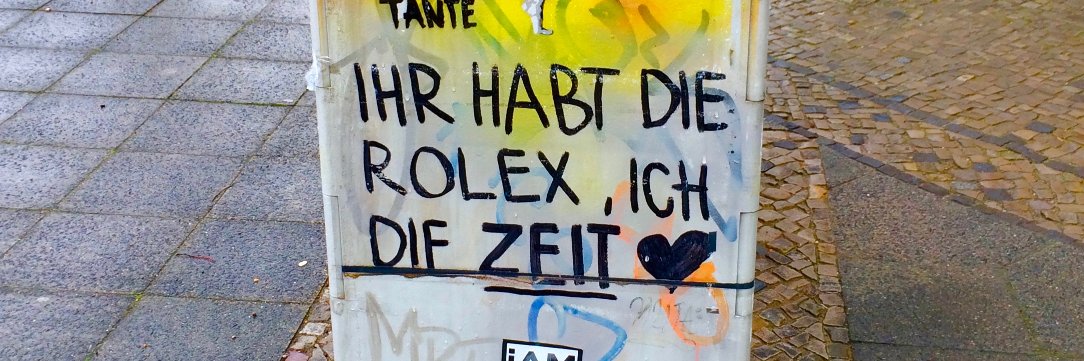 TANTE
IHR HABT DIE
ROLEX, ICH
DIE ZEIT ♥
iAM